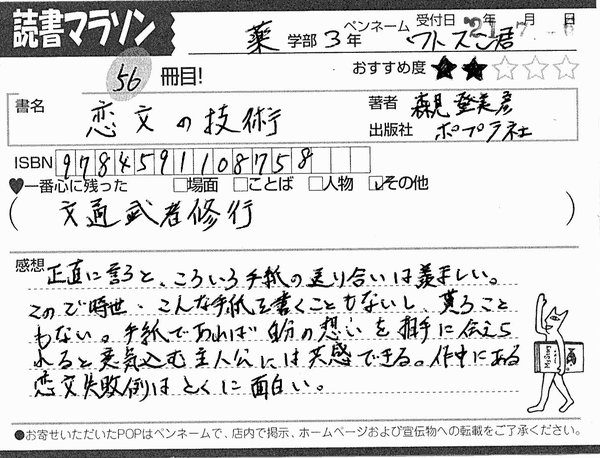 読書マラソン
薬 学部 3年 ペンネーム ワトスン君
受付日 21年 7月 日
56 冊目! おすすめ度 ★★☆☆☆
書名 恋文の技術
著者 森見登美彦
出版社 ポプラ社
ISBN 9784591108758
♥一番心に残った □場面 □ことば □人物 ☑その他
( 文通武者修行 )
感想 正直に言うと、こういう手紙の送り合いは羨ましい。
このご時世、こんな手紙を書くこともないし、貰うこと
もない。手紙であれば自分の想いを相手に伝えら
れると意気込む主人公には共感できる。作中にある
恋文失敗例はとくに面白い。
●お寄せいただいたPOPはペンネームで、店内で掲示、ホームページおよび宣伝物への転載をご了承ください。